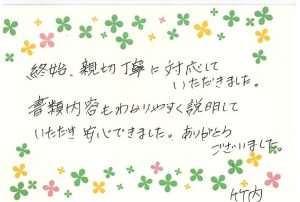 終始、親切丁寧に対応して
いただきました。
書類内容もわかりやすく説明して
いただき安心できました。ありがとう
ございました。
竹内